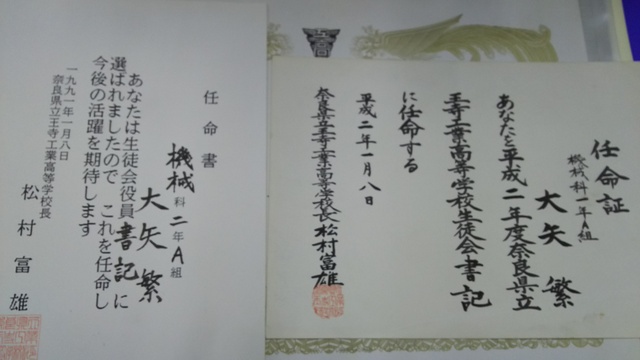 任命書
機械科二年A組
大矢繁
あなたは生徒会役員書記に
選ばれましたので これを任命し
今後の活躍を期待します
一九九一年一月八日
奈良県立王寺工業高等学校長
松村富雄
任命証
機械科一年A組
大矢繁
あなたを平成二年度奈良県立
王寺工業高等学校生徒会書記
に任命する
平成二年一月八日
奈良県立王寺工業高等学校長松村富雄